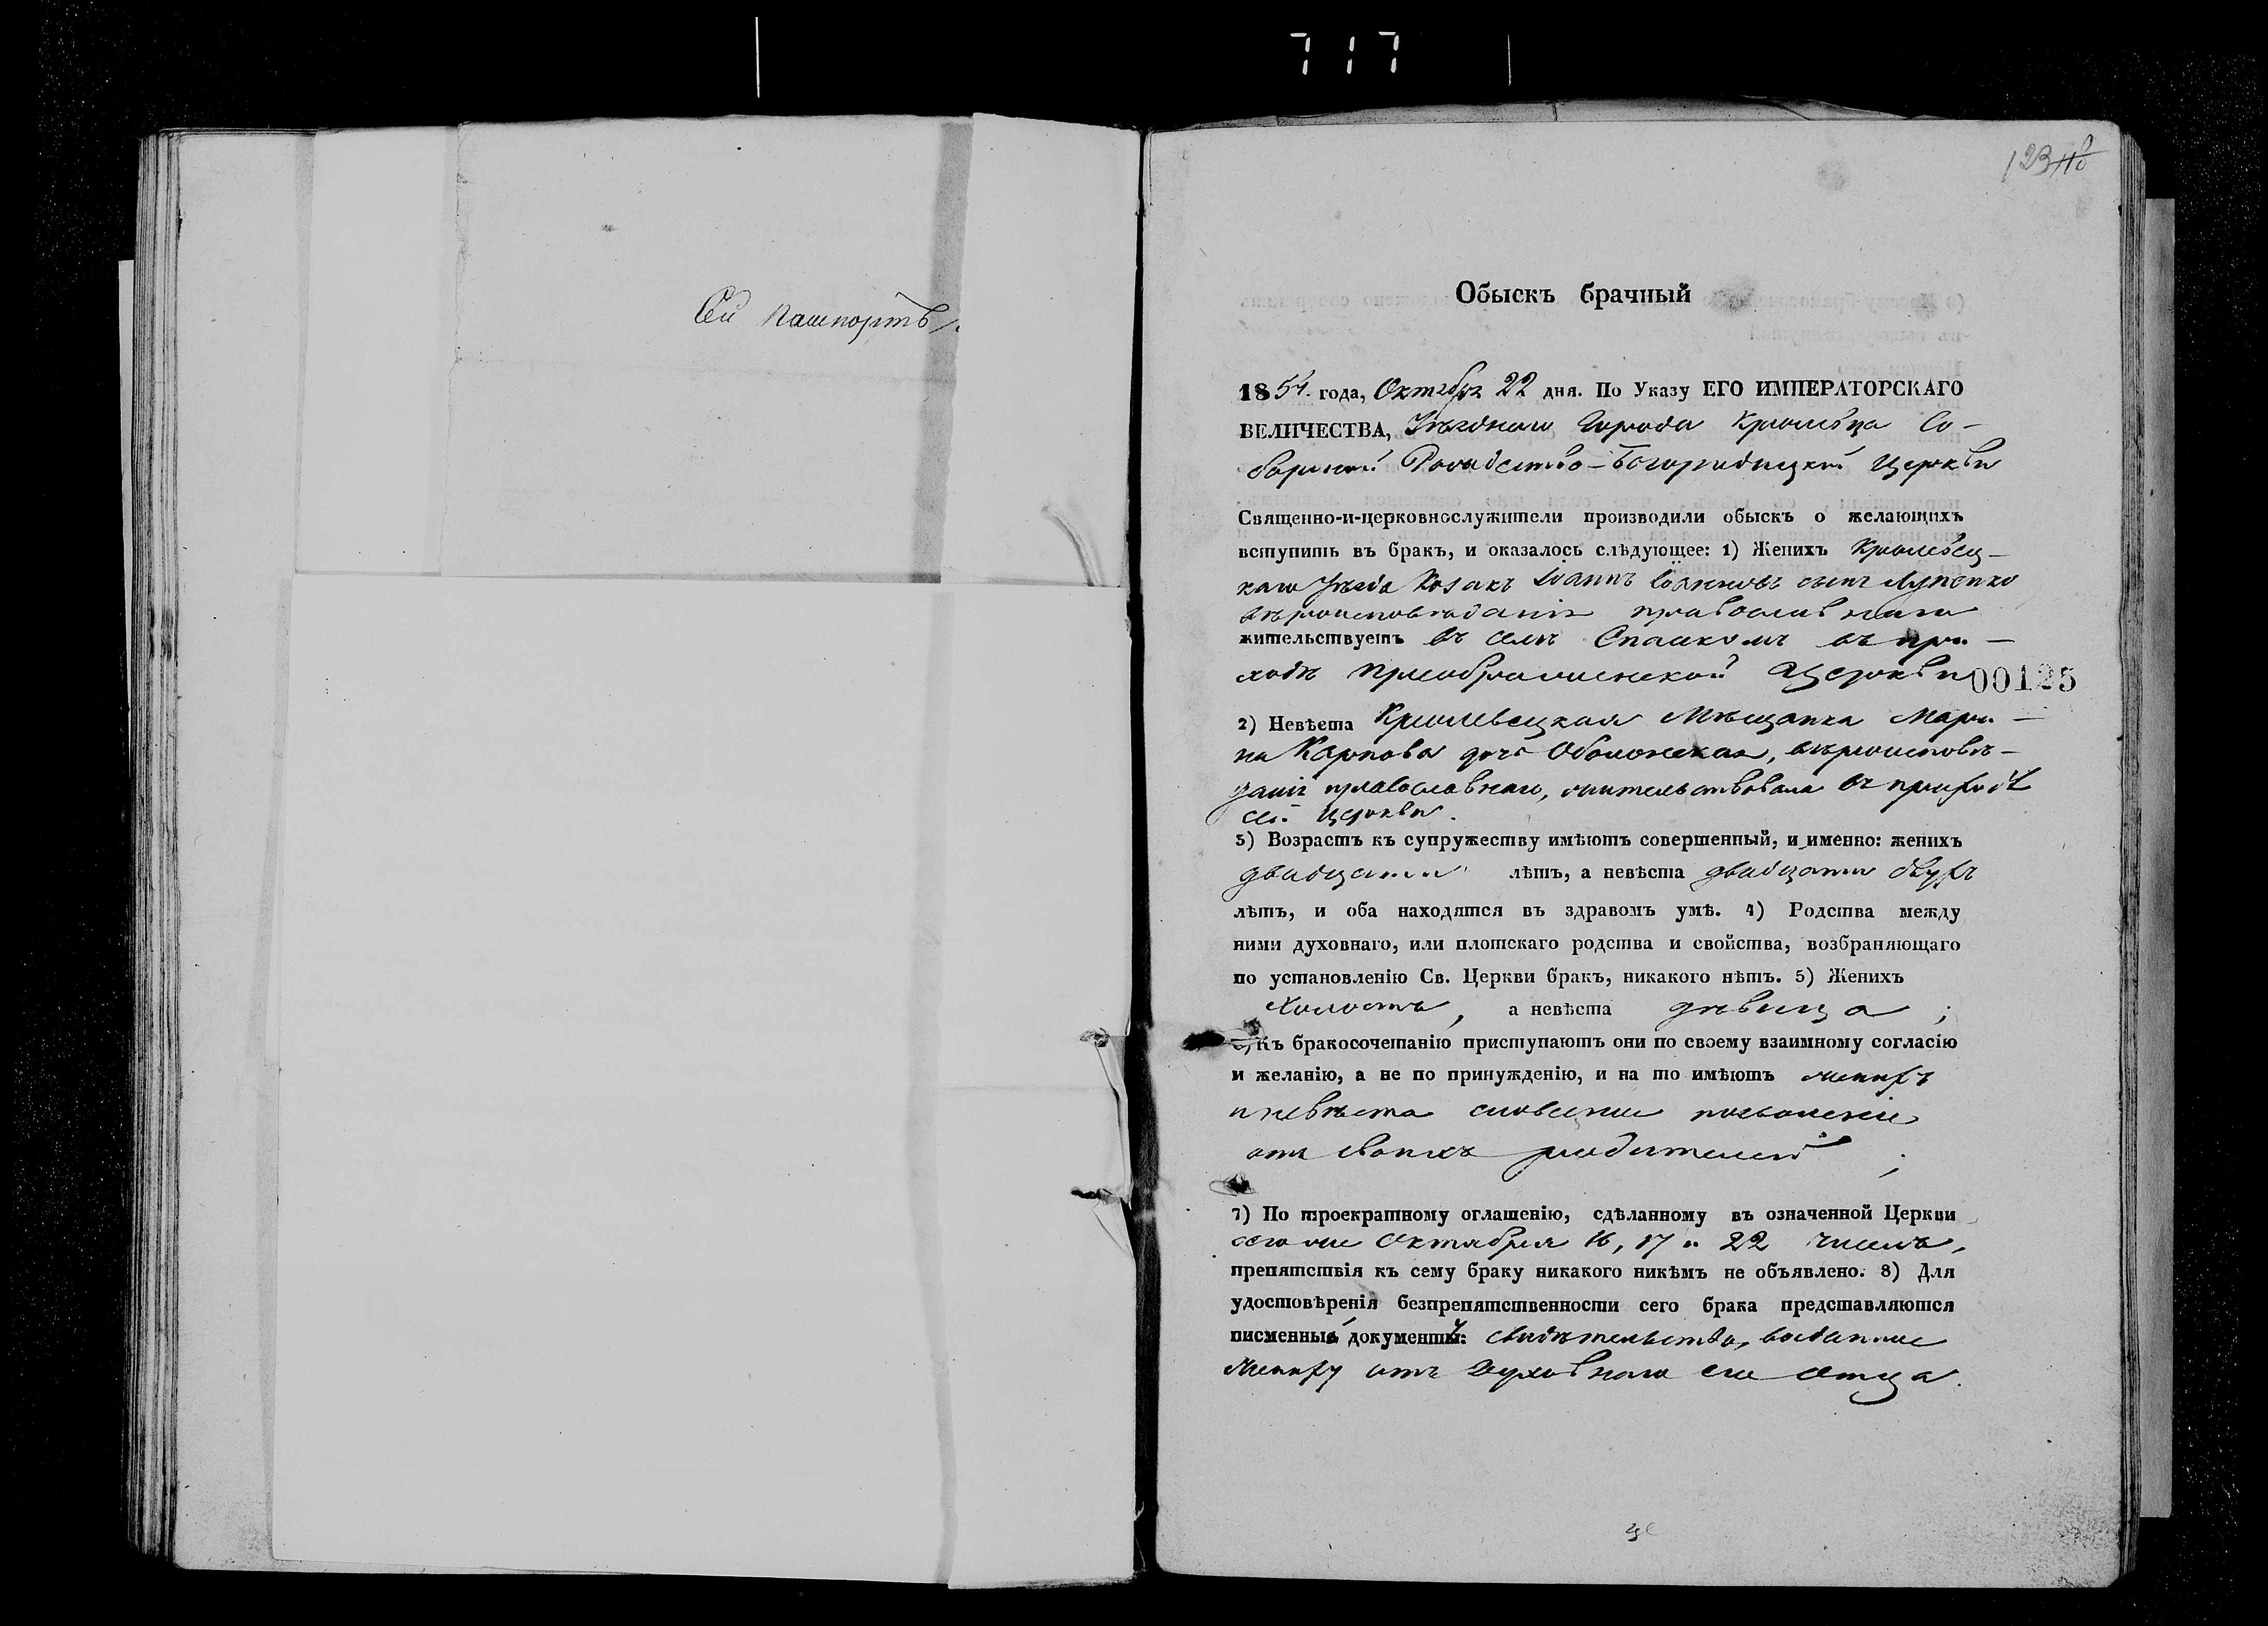 717
123 118
Сей пашпортъ
Обыскъ брачный
1854 года, Октября 22 дня. По Указу ЕГО ИМПЕРАТОРСКАГО
ВЕЛИЧЕСТВА, Уѣзднаго Города Кролевца Со-
борной Рождество-Богородицкой Церкви
Священно-и-церковнослужители производили обыскъ о желающихъ
вступить въ бракъ, и оказалось слѣдующее: 1) Женихъ Кролевец-
каго Уѣзда Козакъ Іоаннъ Іоанновъ сынъ Лупенко
вѣроисповѣданія православнаго
жительствуетъ въ селѣ Спаскомъ въ при-
ходѣ Преображенской Церкви
00125
2) Невѣста Кролевецкая Мѣщанка Мари-
на Карпова дочь Оболонская, вѣроисповѣ-
данія православнаго, жительствовала въ приходѣ
сей Церкви.
3) Возрастъ къ супружеству имѣютъ совершенный, и именно: женихъ
двадцати лѣтъ, а невѣста двадцати двухъ
лѣтъ, и оба находятся въ здравомъ умѣ. 4) Родства между
ними духовнаго, или плотскаго родства и свойства, возбраняющаго
по установленію Св. Церкви бракъ, никакого нѣтъ. 5) Женихъ
холостъ, а невѣста дѣвица;
6) Къ бракосочетанію приступаютъ они по своему взаимному согласію
и желанію, а не по принужденію, и на то имѣютъ женихъ
и невѣста словесные позволеніе
отъ своихъ родителей;
7) По троекратному оглашенію, сдѣланному въ означенной Церкви
сего же Октября 16, 17 и 22 числъ,
препятствія къ сему браку никакого никѣмъ не объявлено. 8) Для
удостовѣренія безпрепятственности сего брака представляются
писменные документы: свидѣтельство, выданное
жениху отъ духовнаго его отца.